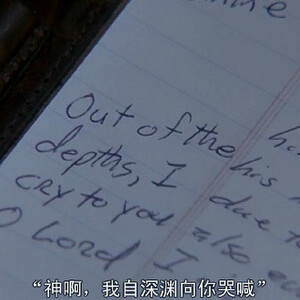 Out of the
depths, I
cry to you
O Lord
his
due to
also
I
“神啊，我自深渊向你哭喊”